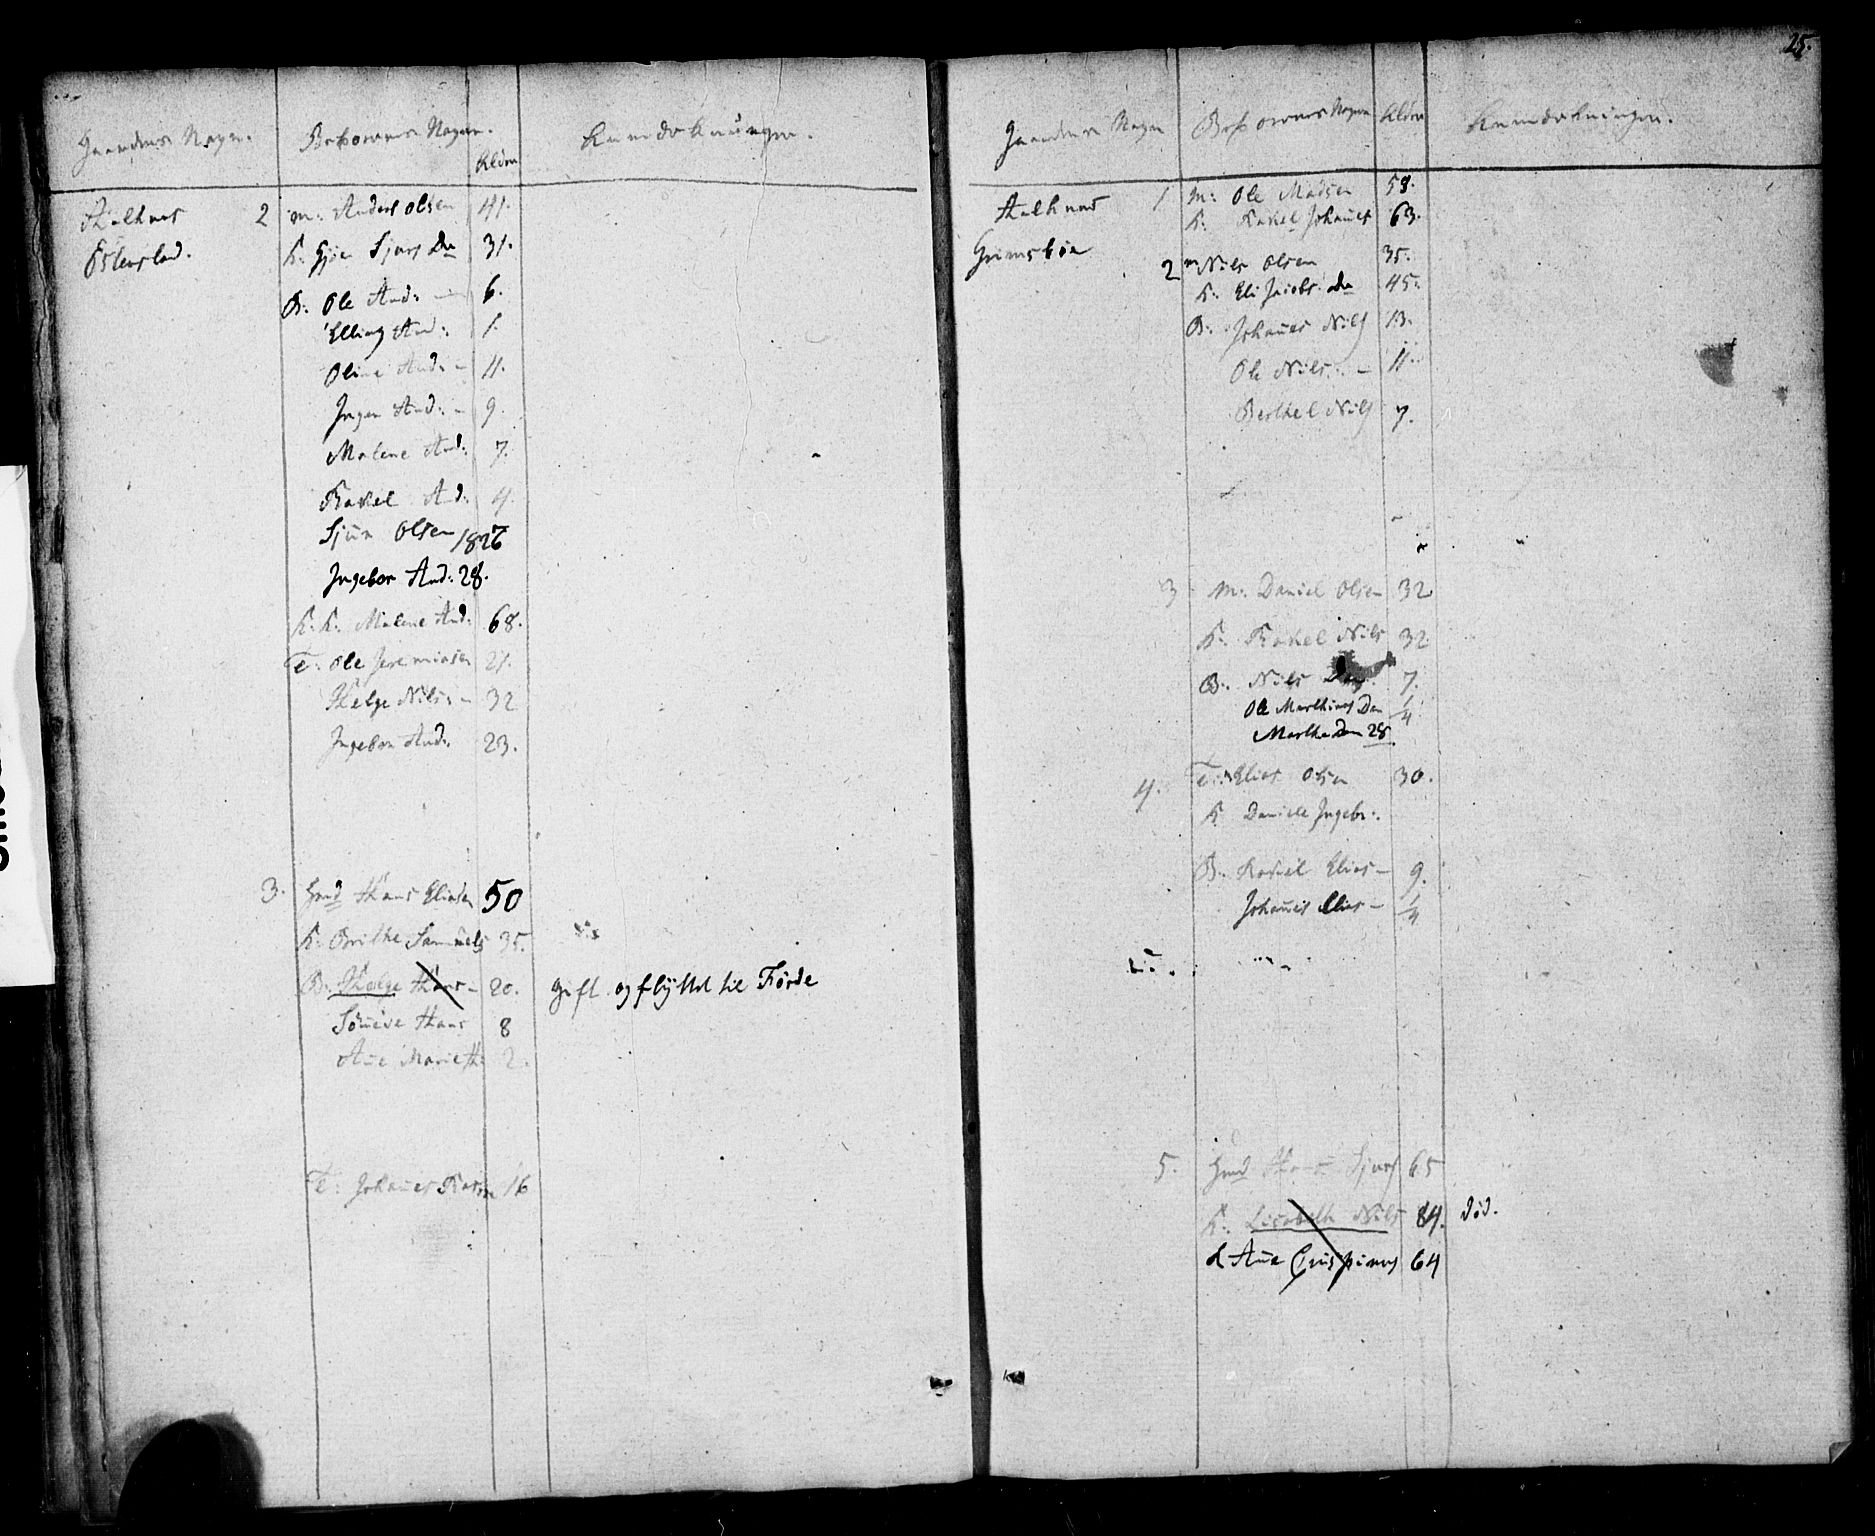 Gaardens Nagn. Beboernes Nagn. Alder Anmærkninger.
Aalhnes 2 m: Anders Olsen 41.
Østensład. K: Gjøn Sjurs Da 31.
B: Ole And: — 6.
Elling And: 1.
Oline And: - 11.
Inger And: - 9.
Malene And: 7.
Rakel And: 4.
Sjur Olsen 1826
Ingebor And: 28.
K: K: Malene And: 68.
T: Ole Jeremiasen 21.
Helge Nils: - 32
Ingebor And: 23.
3. Hmd Hans Eliasen 50
K: Brithe Samuels 35.
B: Helge Hans - 20. gift og flyttet til Førde
Sønneve Hans 8
Ane Marie H: 2.
T: Johanes Rasm 16
25.
Gaardens Nagn Beboernes Nagn Alder Anmærkninger.
Aalhnes 1 m: Ole Madsen 58.
K: Rakel Johanes 63.
Grimsbøe
2 m Nils Olsen 35.
K: Eli Jacobs Da 45.
B: Johanes Nils 13.
Ole Nils: - 11.
Berthel Nils 7.
3 m: Daniel Olsen 32
K: Rakel Nils 32
B: Nils Dan. 7.
Ole Marthines Dan 1/4
Marthe Dan 28
4. T: Elias Olsen 30.
K Daniele Ingebr:
B: Rakel Elias - 9.
Johanes Elias - 1/4
5. Hmd Hans Sjurs 65
K: Lisabeth Nils 84. død.
K Ane Crispinus 64